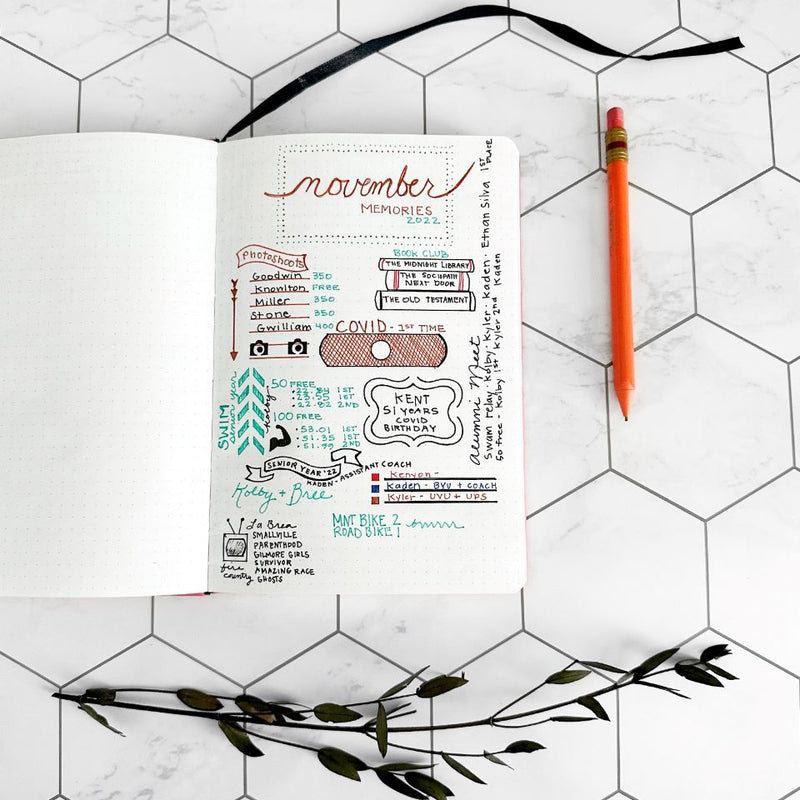 november
MEMORIES
2022
Photoshoots
Goodwin 350
Knowlton FREE
Miller 350
Stone 350
Gwilliam 400
BOOK CLUB
THE MIDNIGHT LIBRARY
THE SOCIOPATH
NEXT DOOR
THE OLD TESTAMENT
COVID - 1ST TIME
SWIM
senior year
Kolby
50 FREE
• 22.84 1ST
• 23.55 1ST
• 22.82 2ND
100 FREE
• 53.01 1ST
• 51.35 1ST
• 51.99 2ND
KENT
51 YEARS
COVID
BIRTHDAY
Alumni Meet 1ST PLACE
Swam relay · Kolby · Kyler · Kaden · Ethan Silva
50 free · Kolby 1st Kyler 2nd Kaden
SENIOR YEAR '22
KADEN - ASSISTANT COACH
Kolby + Bree
Kenyon -
Kaden - BYU + COACH
Kyler - UVU + UPS
MNT BIKE 2
ROAD BIKE 1
La Brea
SMALLVILLE
PARENTHOOD
GILMORE GIRLS
SURVIVOR
AMAZING RACE
GHOSTS
fire
country